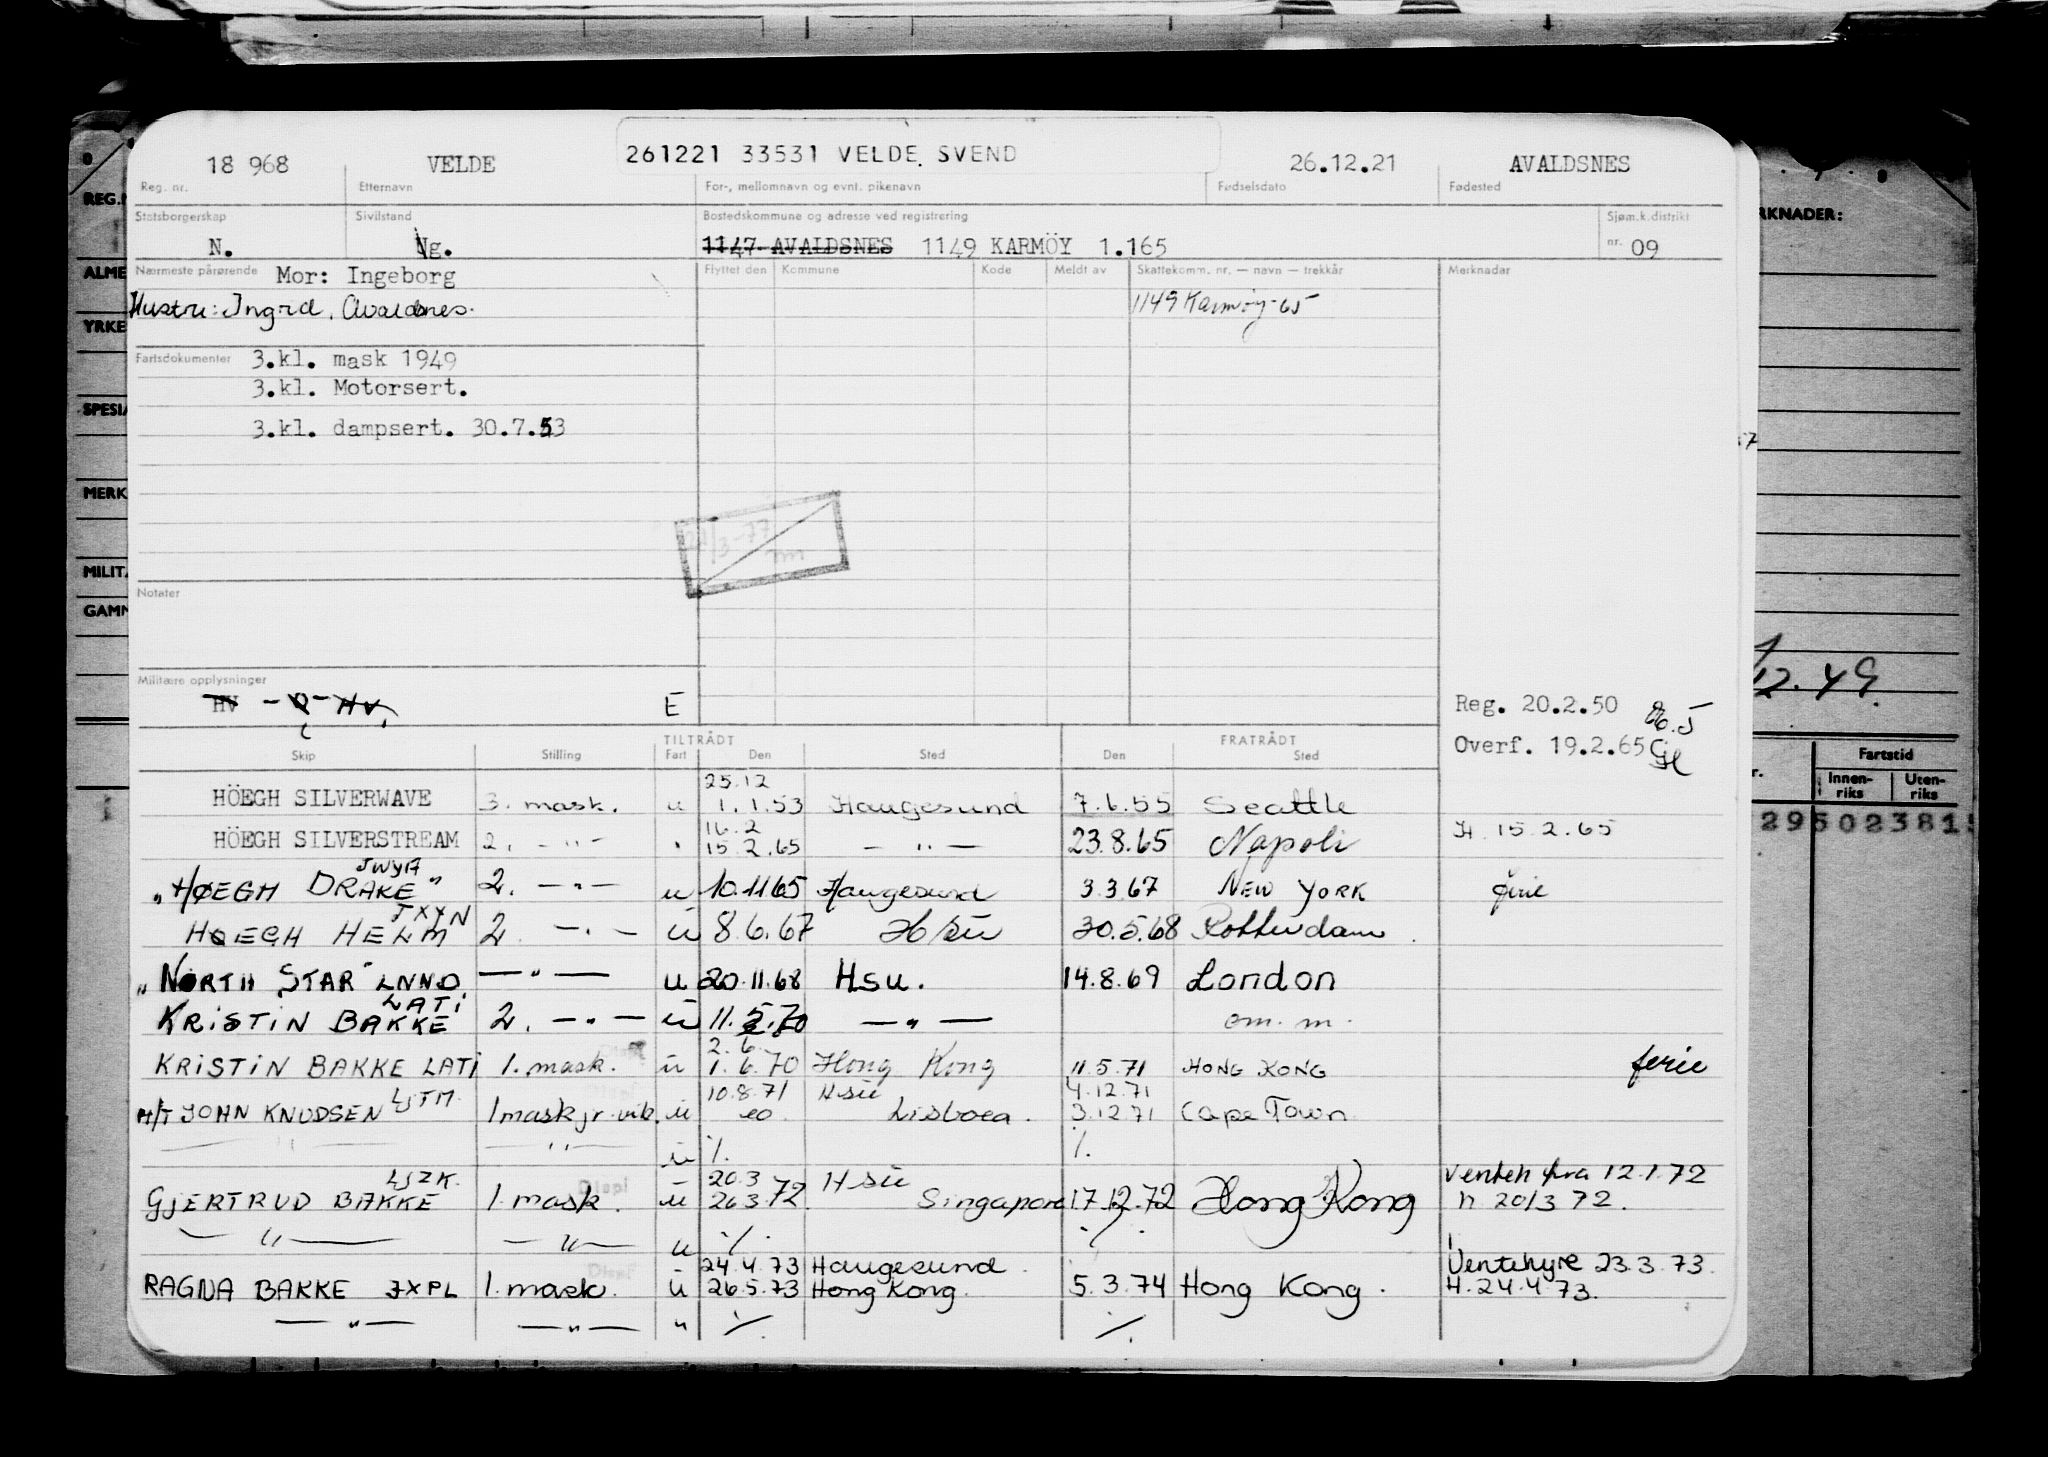 18 968 VELDE 261221 33531 VELDE, SVEND 26.12.21 AVALDSNES
Reg. nr. Etternavn For-, mellomnavn og evnt. pikenavn Fødselsdato Fødested
Statsborgerskap Sivilstand Bostedskommune og adresse ved registrering Sjøm.k.distrikt
N. Ug. 1147 AVALDSNES 1149 KARMÖY 1.165 nr. 09
Nærmeste pårørende Mor: Ingeborg Flyttet den Kommune Kode Meldt av Skattekomm. nr. — navn — trekkår Merknader
Hustru: Ingrid, Avaldsnes. 1149 Karmøy-65
Fartsdokumenter 3.kl. mask 1949
3.kl. Motorsert.
3.kl. dampsert. 30.7.53
22/3-77
Notater
Militære opplysninger
HV - Q - HV, E
Reg. 20.2.50
Overf. 19.2.65
TILTRÅDT FRATRÅDT
Skip Stilling Fart Den Sted Den Sted
25.12
HÖEGH SILVERWAVE 3. mask. u 1.1.53 Haugesund 7.6.55 Seattle
16.2
HÖEGH SILVERSTREAM 2. — " — " 15.2.65 — " — 23.8.65 Napoli H 15.2.65
JWYA
"HØEGH DRAKE" 2. — " — u 10.11 65 Haugesund 3.3 67 NEW YORK ferie
JXYN
HOEGH HELM 2. — " — u 8.6.67 H/su 30.5.68 Rotterdam.
"NORTH STAR" LNND — " — u 20.11.68 Hsu. 14.8.69 London
LATI
KRISTIN BAKKE 2. — " — u 11.5.70 — " — om. m.
2.6.
KRISTIN BAKKE LATI 1. mask. u 1.6.70 Hong Kong 11.5.71 HONG KONG ferie
LJTM 10.8.71 Hsu 4.12.71
M/T JOHN KNUDSEN 1 mask jr. vik. u 20. Lisboea. 3.12.71 Cape Town
— " — — " — u %. %.
LJZK. Displ 20.3 Hsu Venteh fra 12.1.72
GJERTRUD BAKKE 1. mask. u 26 3.72. Singapore 17.12.72 Hong Kong h 20/3 72.
— " — — " — u %. %.
Displ 24.4.73 Haugesund. Ventehyre 23.3.73.
RAGNA BAKKE JXPL 1. mask. u 26.5.73 Hong Kong. 5.3.74 Hong Kong. H. 24.4.73.
— " — — " — " %. %.
REG.
ALME
YRKE
SPESIA
MERK
MILIT
GAMM
RKNADER:
12.49
Fartstid
Innen-riks Uten-riks
29502381